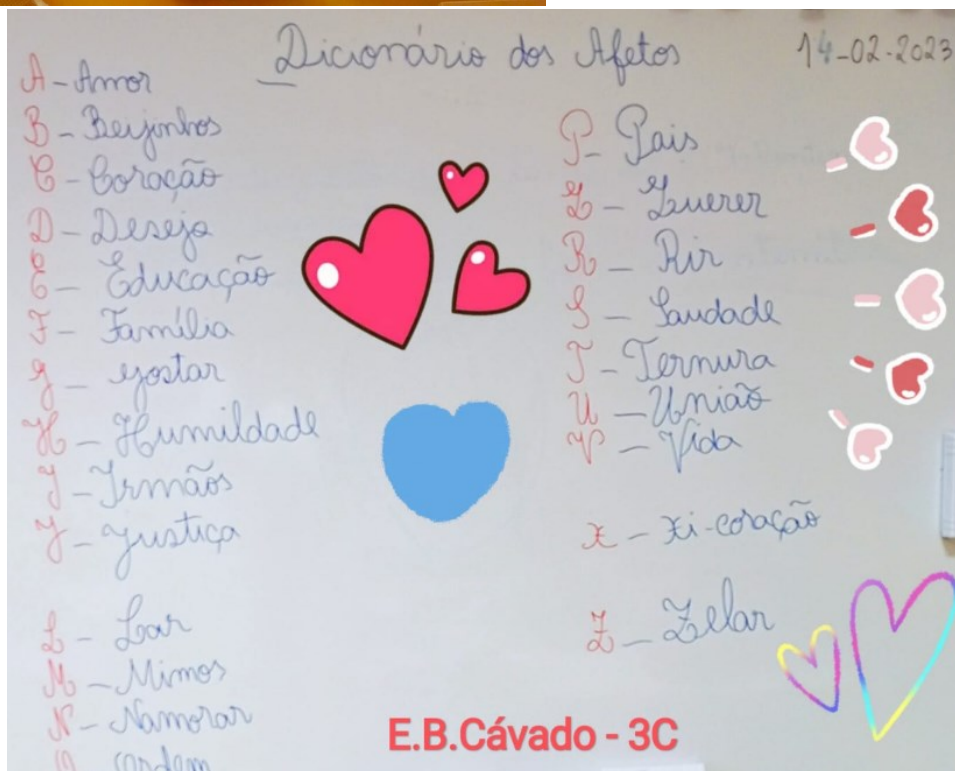 Dicionário dos Afetos 14-02-2023
A - Amor
B - Beijinhos
C - Coração
D - Desejo
E - Educação
F - Família
G - gostar
H - Humildade
I - Irmãos
J - Justiça
L - Lar
M - Mimos
N - Namorar
O ordem
P - Pais
Q - Querer
R - Rir
S - Saudade
T - Ternura
U - União
V - Vida
X - Xi-coração
Z - Zelar
E.B.Cávado - 3C